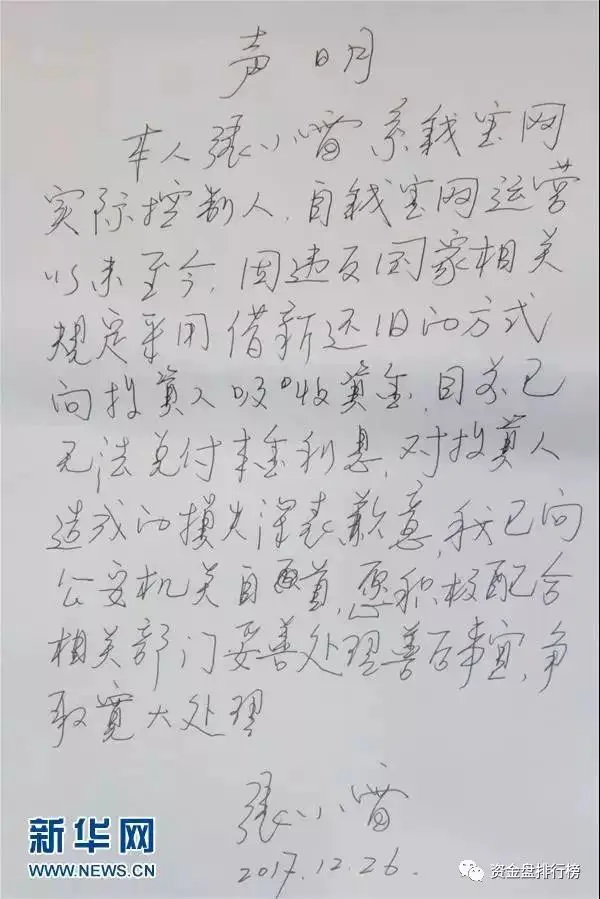 声明
本人張小雷系钱宝网
实际控制人，自钱宝网运营
以来至今，因违反国家相关
规定采用借新还旧的方式
向投資人吸收資金，目前已
无法兑付本金利息，对投資人
造成的損失深表歉意，我已向
公安机关自首，愿积极配合
相关部门妥善处理善后事宜，争
取寬大处理
張小雷
2017.12.26.
新华网
WWW.NEWS.CN
资金盘排行榜